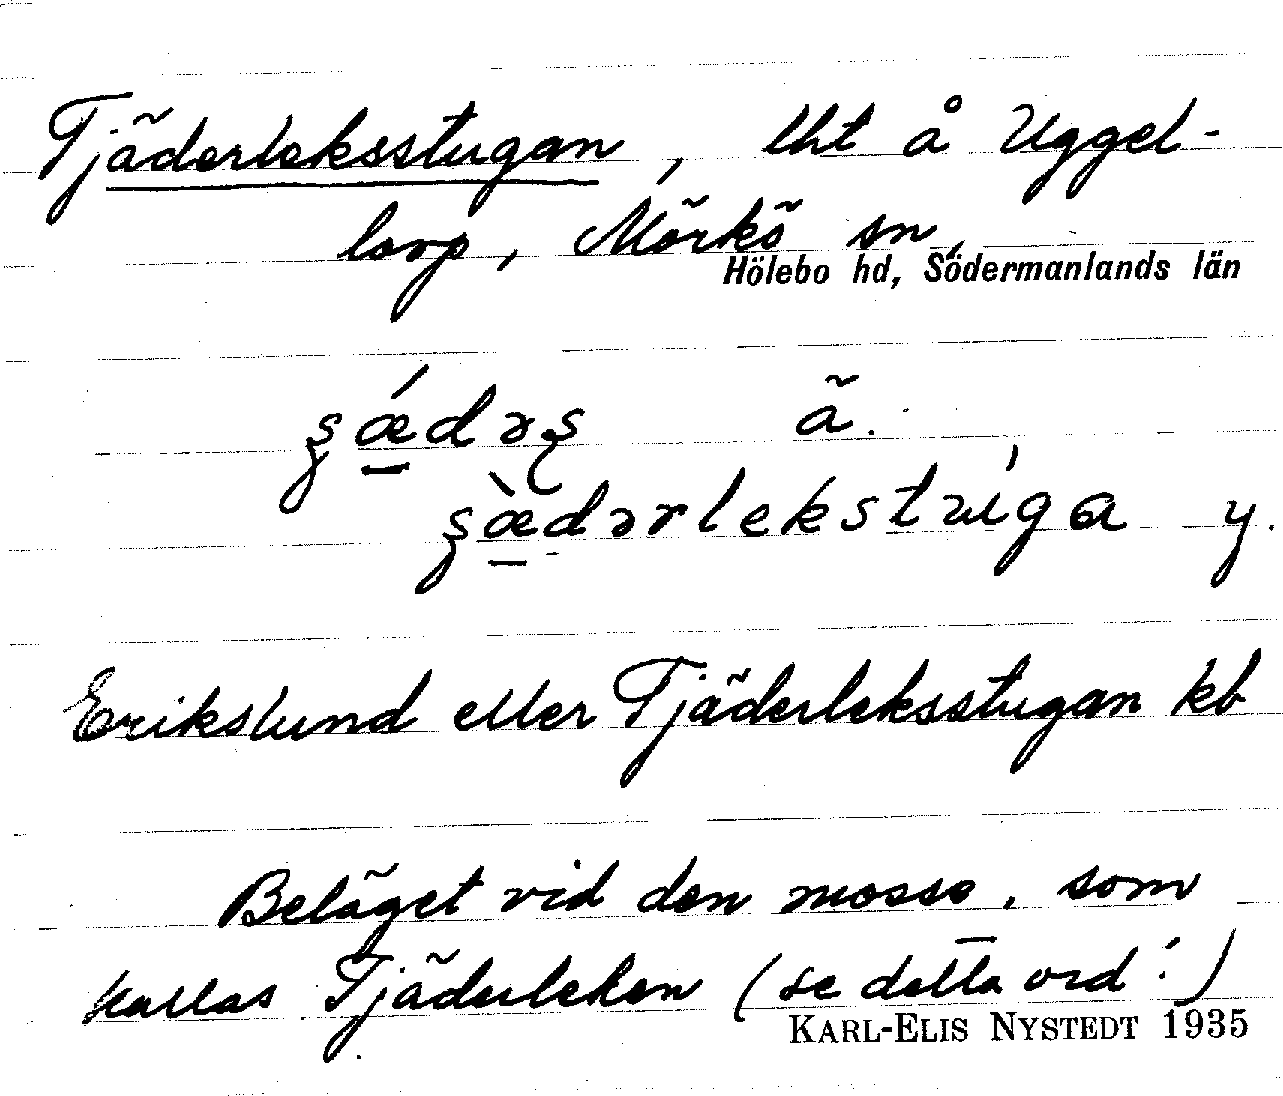 Tjäderleksstugan, lht å Uggel-
torp, Mörkö sn,
Hölebo hd, Södermanlands län
ä.
y.
Erikslund eller Tjäderleksstugan kb
Beläget vid den mosse, som
kallas Tjäderleken (se detta ord!)
KARL-ELIS NYSTEDT 1935